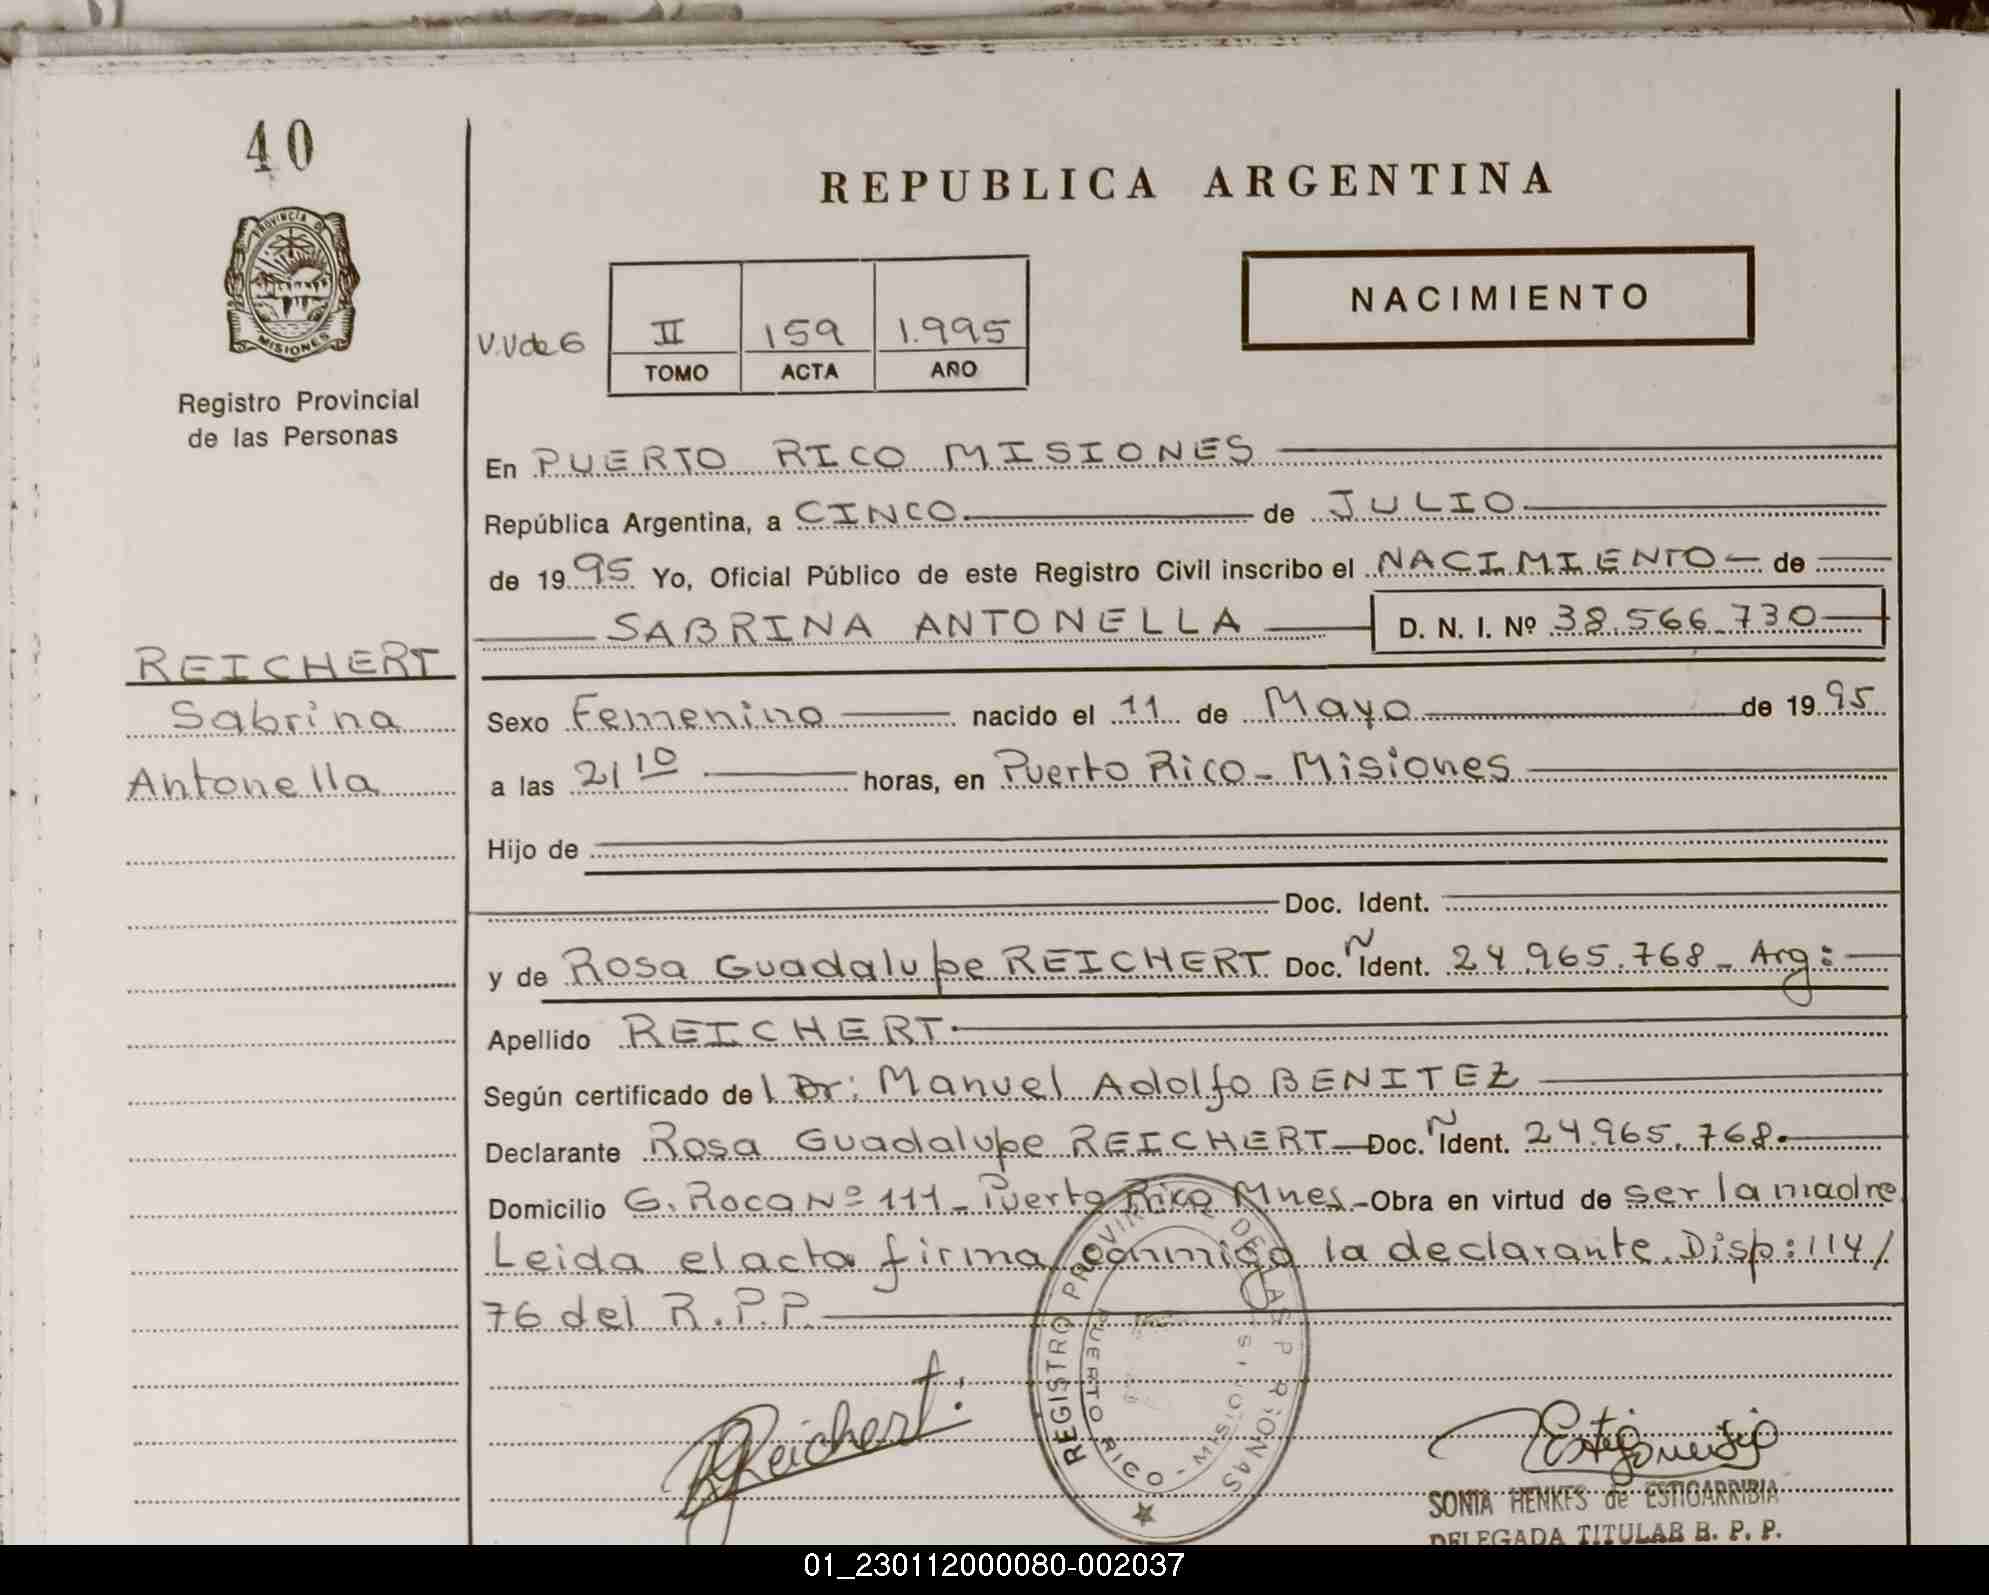 40
REPUBLICA ARGENTINA
PROVINCIA DE
MISIONES
Registro Provincial
de las Personas
NACIMIENTO
V.V de 6
II 159 1.995
TOMO ACTA AÑO
En PUERTO RICO MISIONES
República Argentina, a CINCO de JULIO
de 1995 Yo, Oficial Público de este Registro Civil inscribo el NACIMIENTO de
SABRINA ANTONELLA D. N. I. Nº 38.566.730
REICHERT
Sabrina
Antonella
Sexo Femenino nacido el 11 de Mayo de 1995
a las 21 10 horas, en Puerto Rico - Misiones
Hijo de
Doc. Ident.
y de Rosa Guadalupe REICHERT Doc. Ñ Ident. 24.965.768 - Arg:
Apellido REICHERT.
Según certificado del Dr: Manuel Adolfo BENITEZ
Declarante Rosa Guadalupe REICHERT Doc. Ñ Ident. 24.965.768.
Domicilio G. Roca Nº 111 - Puerto Rico Mnes. - Obra en virtud de ser la madre
Leida el acta firma conmigo la declarante. Disp: 114/
76 del R.P.P.
REGISTRO PROVINCIAL DE LAS PERSONAS
PUERTO RICO - MISIONES
Reichert
SONIA HENKES de ESTIGARRIBIA
DELEGADA TITULAR R. P. P.
01_230112000080-002037